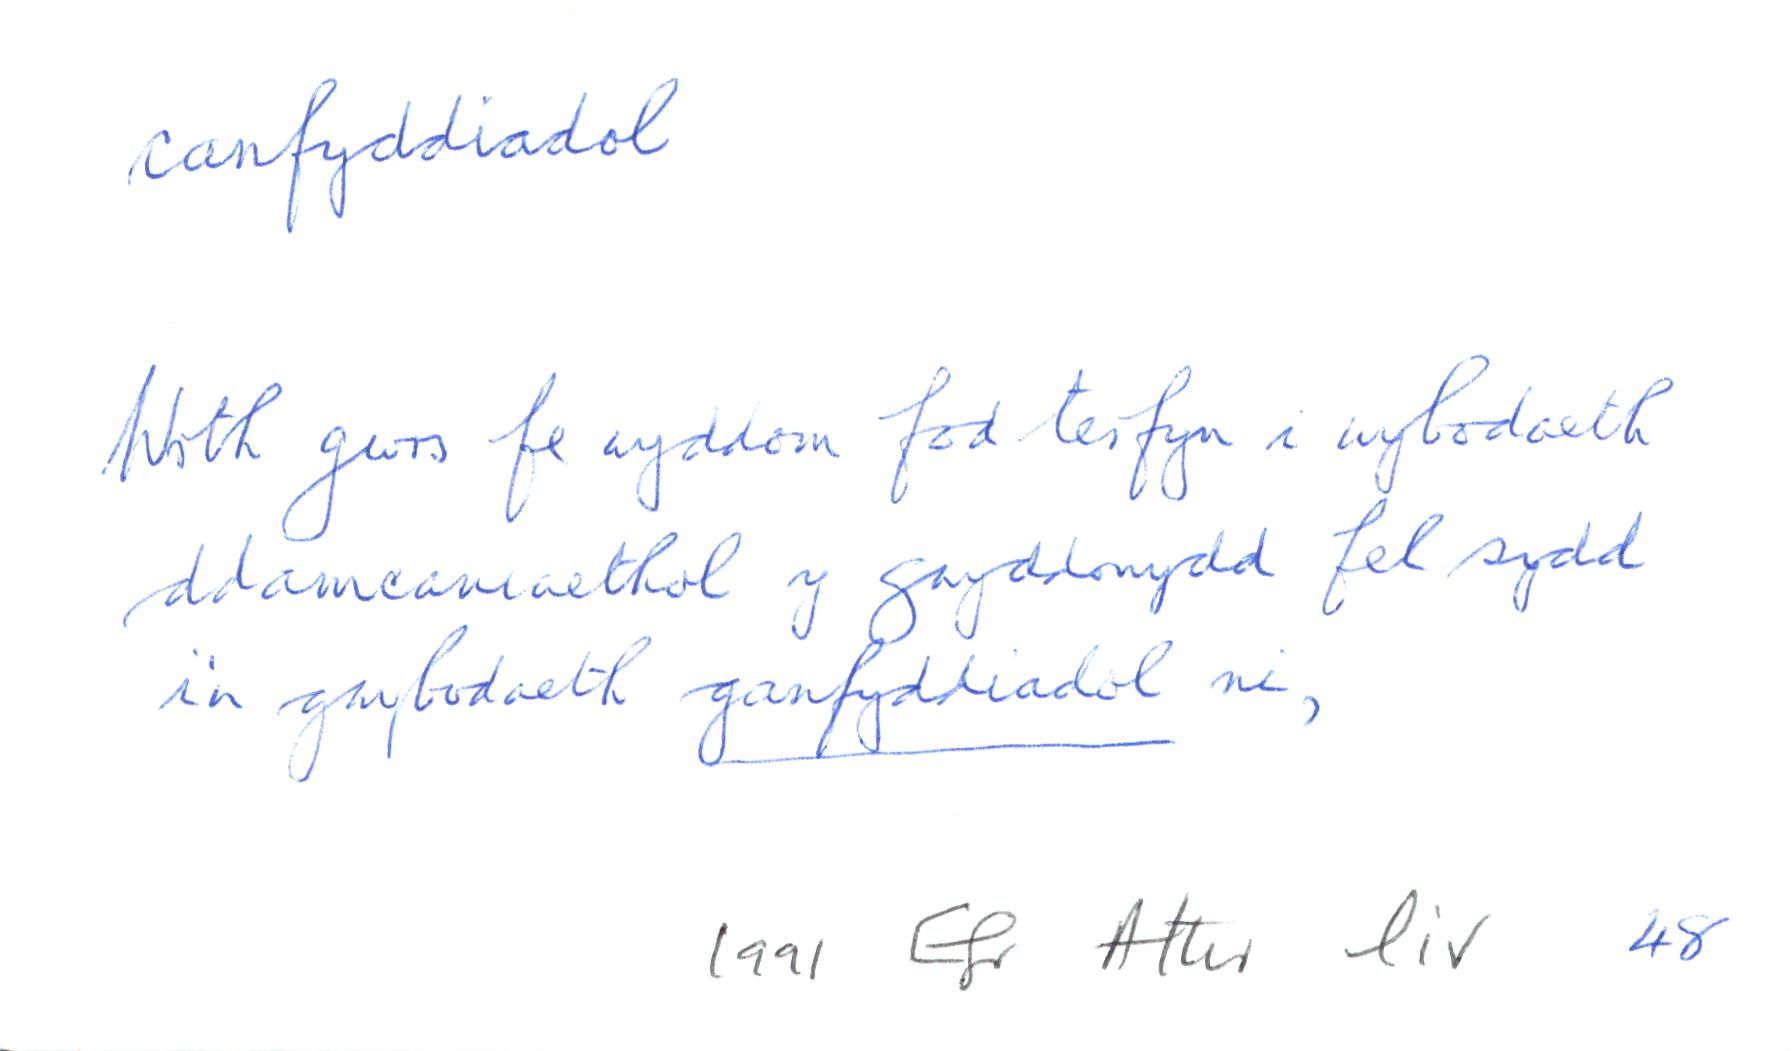 canfyddiadol
Wrth gwrs fe wyddom fod terfyn i wybodaeth
ddamcaniaethol y gwyddonydd fel sydd
i'n gwybodaeth ganfyddiadol ni,
1991 Efr Athr liv 48